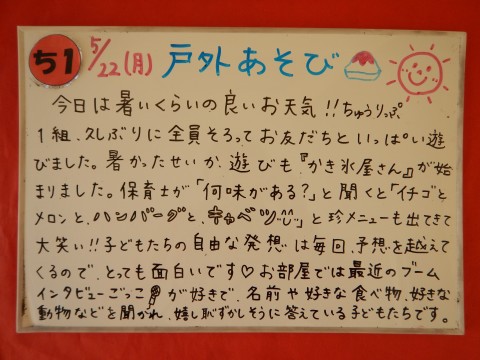 ち1 5/22(月) 戸外あそび
今日は暑いくらいの良いお天気!!ちゅうりっぷ
1組、久しぶりに全員そろってお友だちといっぱい遊
びました。暑かったせいか、遊びも『かき氷屋さん』が始
まりました。保育士が「何味がある?」と聞くと「イチゴと
メロンと、ハンバーグと、キャベツ」と珍メニューも出てきて
大笑い!!子どもたちの自由な発想は毎回、予想を越えて
くるので、とっても面白いです♡お部屋では最近のブーム
インタビューごっこが好きで、名前や好きな食べ物、好きな
動物などを聞かれ、嬉し恥ずかしそうに答えている子どもたちです。